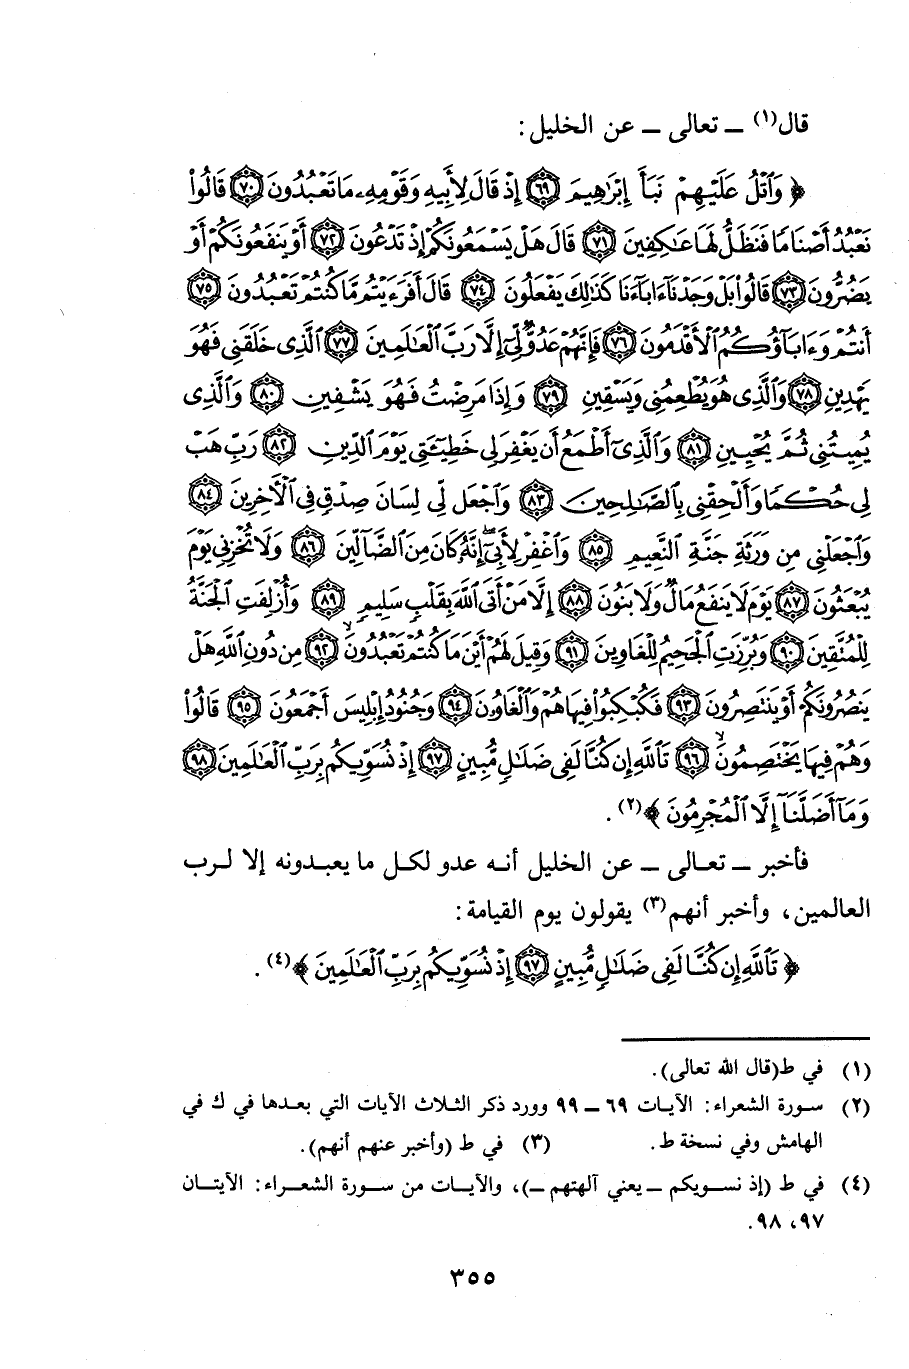 قال(١) ــ تعالى ــ عن الخليل:
﴿ وَٱتْلُ عَلَيْهِمْ نَبَأَ إِبْرَٰهِيمَ ۝٦٩ إِذْ قَالَ لِأَبِيهِ وَقَوْمِهِۦ مَا تَعْبُدُونَ ۝٧٠ قَالُوا۟
نَعْبُدُ أَصْنَامًا فَنَظَلُّ لَهَا عَٰكِفِينَ ۝٧١ قَالَ هَلْ يَسْمَعُونَكُمْ إِذْ تَدْعُونَ ۝٧٢ أَوْ يَنفَعُونَكُمْ أَوْ
يَضُرُّونَ ۝٧٣ قَالُوا۟ بَلْ وَجَدْنَآ ءَابَآءَنَا كَذَٰلِكَ يَفْعَلُونَ ۝٧٤ قَالَ أَفَرَءَيْتُم مَّا كُنتُمْ تَعْبُدُونَ ۝٧٥
أَنتُمْ وَءَابَآؤُكُمُ ٱلْأَقْدَمُونَ ۝٧٦ فَإِنَّهُمْ عَدُوٌّ لِّىٓ إِلَّا رَبَّ ٱلْعَٰلَمِينَ ۝٧٧ ٱلَّذِى خَلَقَنِى فَهُوَ
يَهْدِينِ ۝٧٨ وَٱلَّذِى هُوَ يُطْعِمُنِى وَيَسْقِينِ ۝٧٩ وَإِذَا مَرِضْتُ فَهُوَ يَشْفِينِ ۝٨٠ وَٱلَّذِى
يُمِيتُنِى ثُمَّ يُحْيِينِ ۝٨١ وَٱلَّذِىٓ أَطْمَعُ أَن يَغْفِرَ لِى خَطِيٓـَٔتِى يَوْمَ ٱلدِّينِ ۝٨٢ رَبِّ هَبْ
لِى حُكْمًا وَأَلْحِقْنِى بِٱلصَّٰلِحِينَ ۝٨٣ وَٱجْعَل لِّى لِسَانَ صِدْقٍ فِى ٱلْأَخِرِينَ ۝٨٤
وَٱجْعَلْنِى مِن وَرَثَةِ جَنَّةِ ٱلنَّعِيمِ ۝٨٥ وَٱغْفِرْ لِأَبِىٓ إِنَّهُۥ كَانَ مِنَ ٱلضَّآلِّينَ ۝٨٦ وَلَا تُخْزِنِى يَوْمَ
يُبْعَثُونَ ۝٨٧ يَوْمَ لَا يَنفَعُ مَالٌ وَلَا بَنُونَ ۝٨٨ إِلَّا مَنْ أَتَى ٱللَّهَ بِقَلْبٍ سَلِيمٍ ۝٨٩ وَأُزْلِفَتِ ٱلْجَنَّةُ
لِلْمُتَّقِينَ ۝٩٠ وَبُرِّزَتِ ٱلْجَحِيمُ لِلْغَاوِينَ ۝٩١ وَقِيلَ لَهُمْ أَيْنَ مَا كُنتُمْ تَعْبُدُونَ ۝٩٢ مِن دُونِ ٱللَّهِ هَلْ
يَنصُرُونَكُمْ أَوْ يَنتَصِرُونَ ۝٩٣ فَكُبْكِبُوا۟ فِيهَا هُمْ وَٱلْغَاوُۥنَ ۝٩٤ وَجُنُودُ إِبْلِيسَ أَجْمَعُونَ ۝٩٥ قَالُوا۟
وَهُمْ فِيهَا يَخْتَصِمُونَ ۝٩٦ تَٱللَّهِ إِن كُنَّا لَفِى ضَلَٰلٍ مُّبِينٍ ۝٩٧ إِذْ نُسَوِّيكُم بِرَبِّ ٱلْعَٰلَمِينَ ۝٩٨
وَمَآ أَضَلَّنَآ إِلَّا ٱلْمُجْرِمُونَ ﴾(٢).
فأخبر ــ تعالى ــ عن الخليل أنه عدو لكل ما يعبدونه إلا لرب
العالمين، وأخبر أنهم(٣) يقولون يوم القيامة:
﴿ تَٱللَّهِ إِن كُنَّا لَفِى ضَلَٰلٍ مُّبِينٍ ۝٩٧ إِذْ نُسَوِّيكُم بِرَبِّ ٱلْعَٰلَمِينَ ﴾(٤).
(١) في ط (قال الله تعالى).
(٢) سورة الشعراء: الآيات ٦٩ ــ ٩٩ وورد ذكر الثلاث الآيات التي بعدها في ك في
الهامش وفي نسخة ط. (٣) في ط (وأخبر عنهم أنهم).
(٤) في ط (إذ نسويكم ــ يعني آلهتهم ــ)، والآيات من سورة الشعراء: الآيتان
٩٧، ٩٨.
٣٥٥